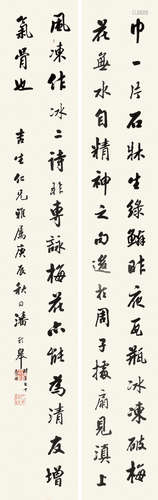 巾一片石牀生綠蘚昨夜瓦瓶冰凍破梅
花無水自精神之句於周子扇見上
風凍作冰二詩非專詠梅花亦能為清友增
氣骨也 吉生仁兄雅屬庚辰秋日潘齡皋